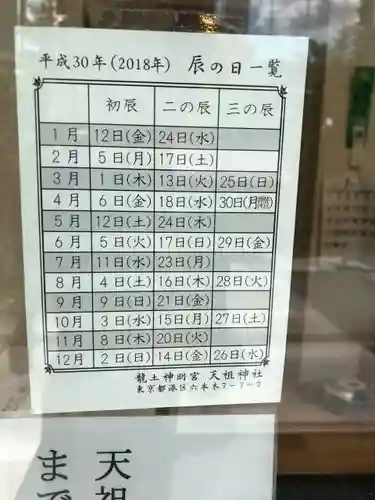 平成30年(2018年) 辰の日一覧
初辰 二の辰 三の辰
1月 12日(金) 24日(水)
2月 5日(月) 17日(土)
3月 1日(木) 13日(火) 25日(日)
4月 6日(金) 18日(水) 30日(月)
5月 12日(土) 24日(木)
6月 5日(火) 17日(日) 29日(金)
7月 11日(水) 23日(月)
8月 4日(土) 16日(木) 28日(火)
9月 9日(日) 21日(金)
10月 3日(水) 15日(月) 27日(土)
11月 8日(木) 20日(火)
12月 2日(日) 14日(金) 26日(水)
龍土神明宮 天祖神社
東京都港区六本木7-7-7
天祖
まで